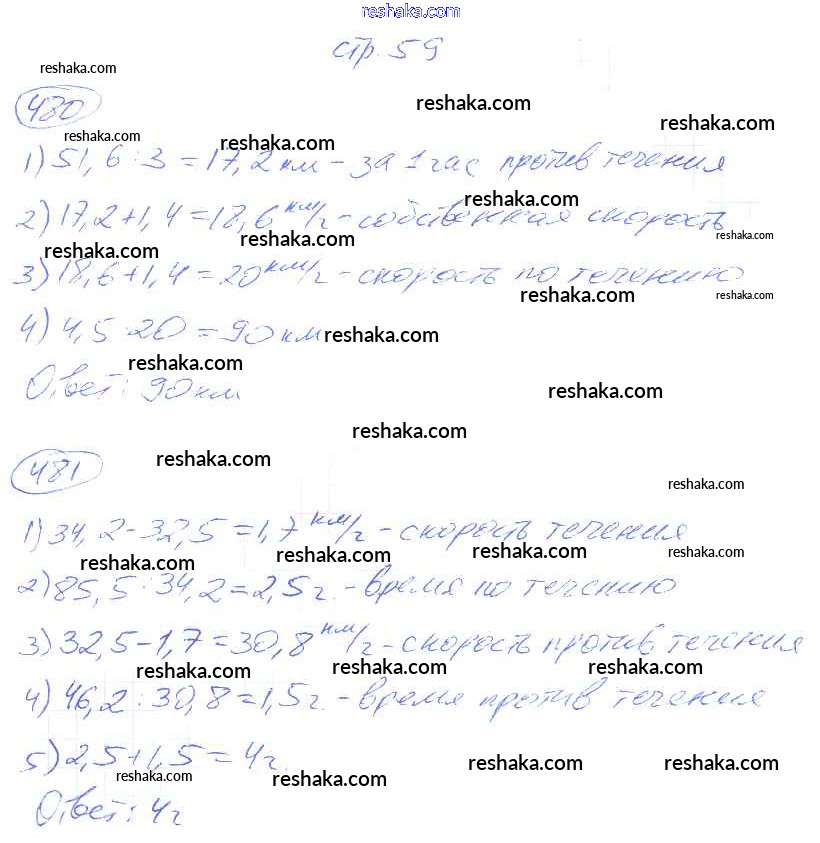 reshaka.com
стр. 59
reshaka.com
480
reshaka.com
reshaka.com
reshaka.com
reshaka.com
1) 51,6 : 3 = 17,2 км - за 1 час против течения
reshaka.com
2) 17,2 + 1,4 = 18,6 км/ч - собственная скорость
reshaka.com
reshaka.com
reshaka.com
3) 18,6 + 1,4 = 20 км/ч - скорость по течению
reshaka.com
reshaka.com
4) 4,5 · 20 = 90 км
reshaka.com
reshaka.com
Ответ: 90 км
reshaka.com
reshaka.com
481
reshaka.com
reshaka.com
1) 34,2 - 32,5 = 1,7 км/ч - скорость течения
reshaka.com
reshaka.com
reshaka.com
reshaka.com
2) 85,5 : 34,2 = 2,5 ч. - время по течению
3) 32,5 - 1,7 = 30,8 км/ч - скорость против течения
reshaka.com
reshaka.com
reshaka.com
4) 46,2 : 30,8 = 1,5 ч. - время против течения
5) 2,5 + 1,5 = 4 ч.
reshaka.com
reshaka.com
reshaka.com
reshaka.com
Ответ: 4 ч